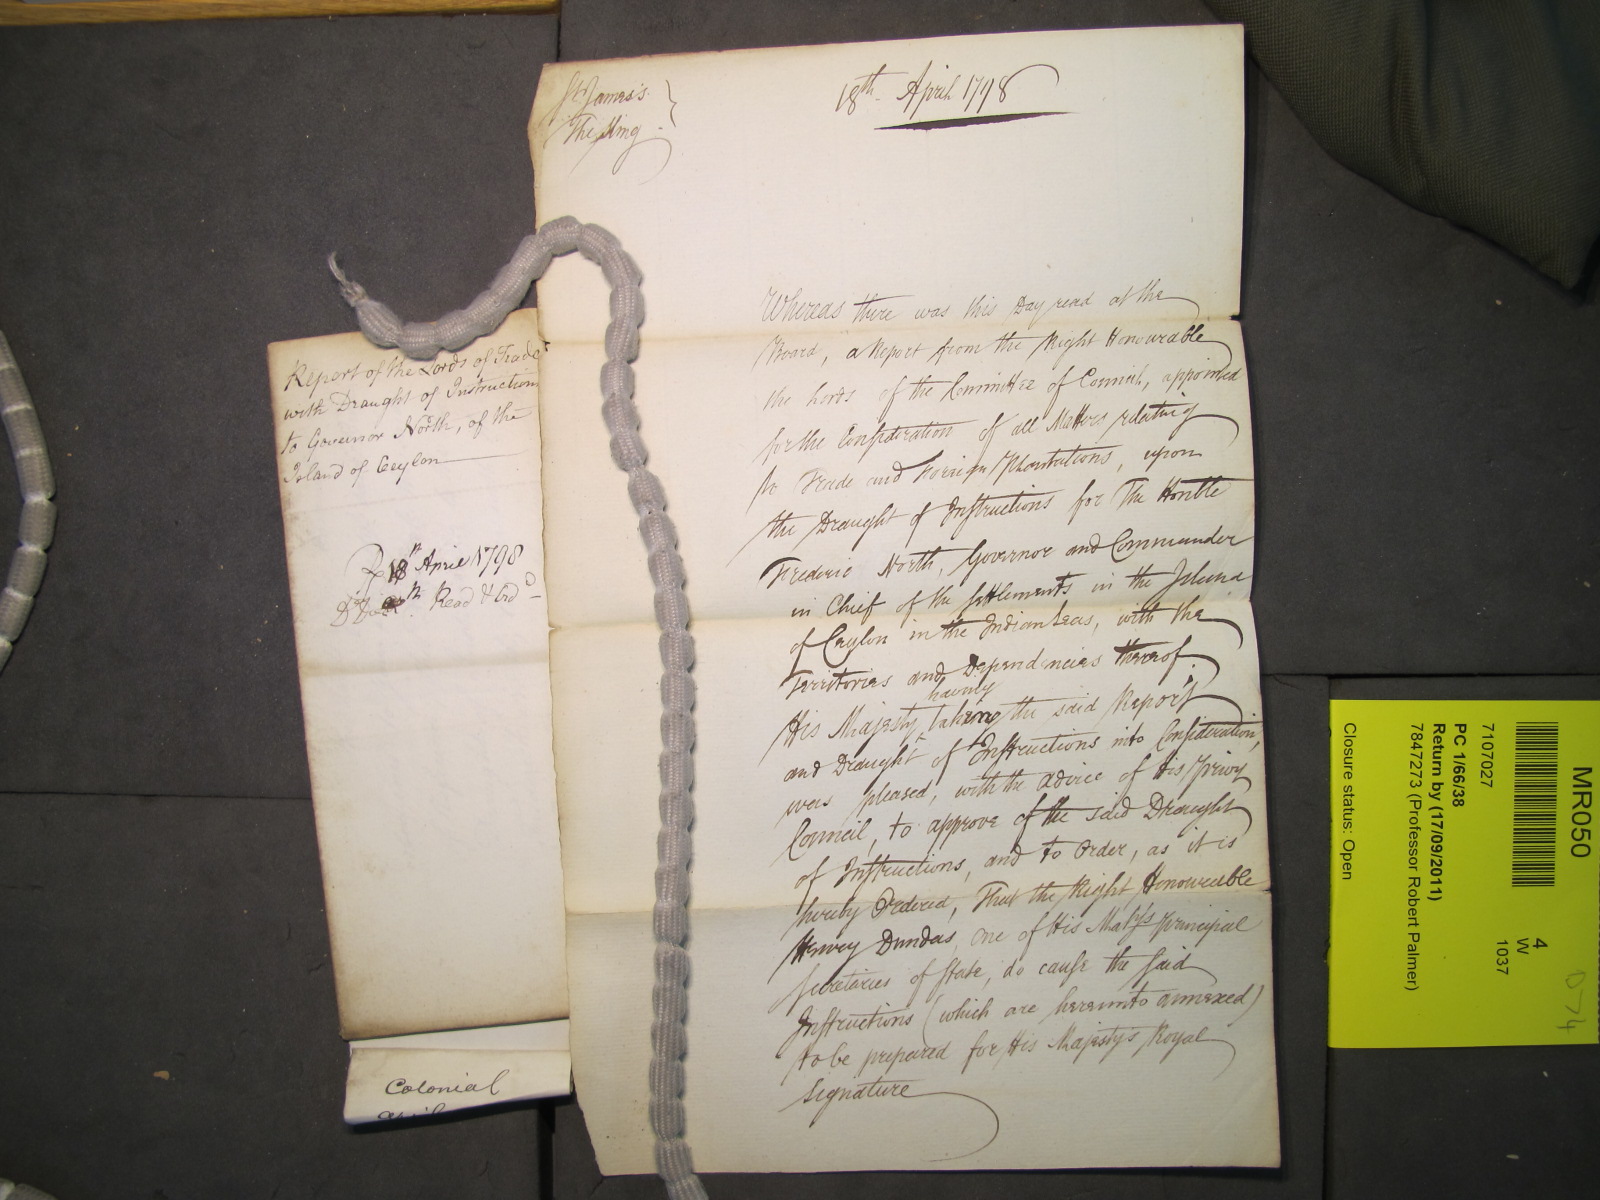 St. James's
The King
18th April 1798
Whereas there was this Day read at the
Board, a Report from the Right Honourable
the Lords of the Committee of Council, appointed
for the Consideration of all Matters relating
to Trade and Foreign Plantations, upon
the Draught of Instructions for The Honble
Frederic North, Governor and Commander
in Chief of the Settlements in the Island
of Ceylon in the Indian Seas, with the
Territories and Dependencies thereof
having
His Majesty taking the said Report
and Draught of Instructions into Consideration,
was pleased, with the advice of His Privy
Council, to approve of the said Draught
of Instructions, and to Order, as it is
hereby Ordered, That the Right Honourable
Henry Dundas, One of His Maty's Principal
Secretaries of State, do cause the said
Instructions (which are hereunto annexed)
to be prepared for His Majesty's Royal
Signature
Report of the Lords of Trade
with Draught of Instructions
to Governor North, of the
Island of Ceylon
R 18th April 1798
Read & Ord
Colonial
April
MR050
4
W
1037
7107027
PC 1/66/38
Return by (17/09/2011)
7847273 (Professor Robert Palmer)
Closure status: Open